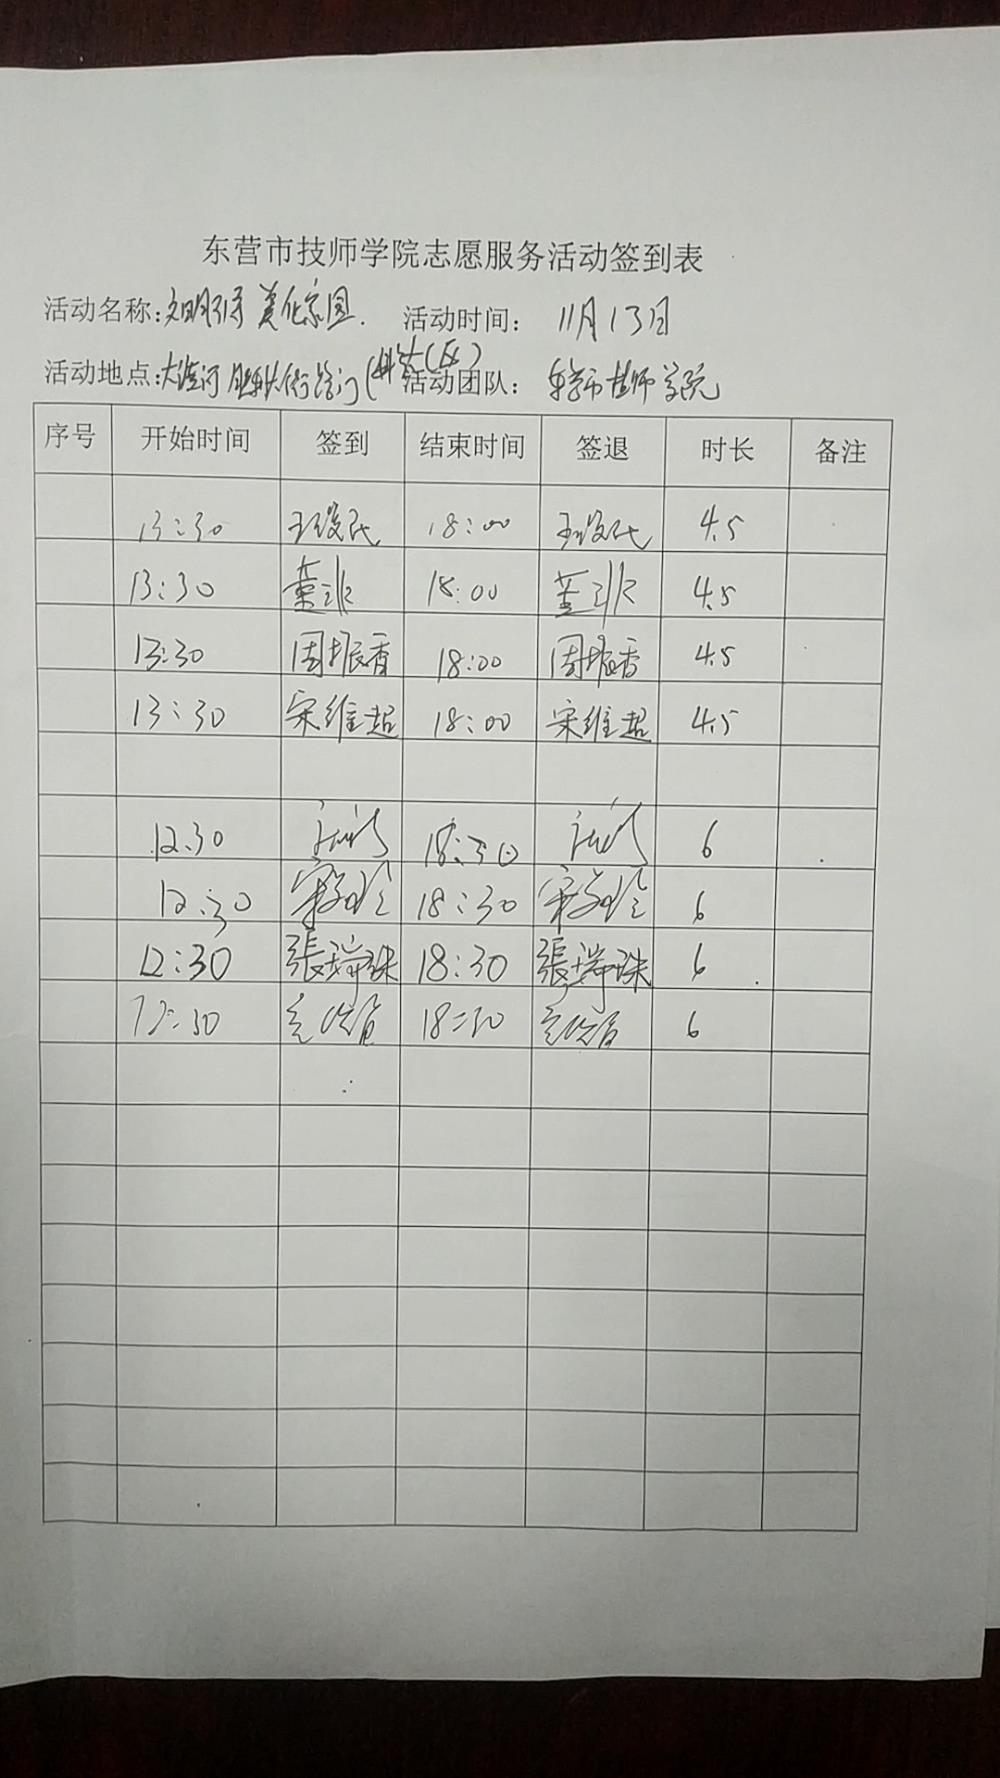 东营市技师学院志愿服务活动签到表
活动名称: 美化家园. 活动时间: 11月13日
活动地点: 活动团队: 东营市技师学院
序号 开始时间 签到 结束时间 签退 时长 备注
13:30 18:00 4.5
13:30 董 18:00 董 4.5
13:30 周振香 18:00 周振香 4.5
13:30 宋维超 18:00 宋维超 4.5
12.30 18:30 6
12:30 18:30 6
12:30 張瑞珠 18:30 張瑞珠 6
12:30 18:30 6